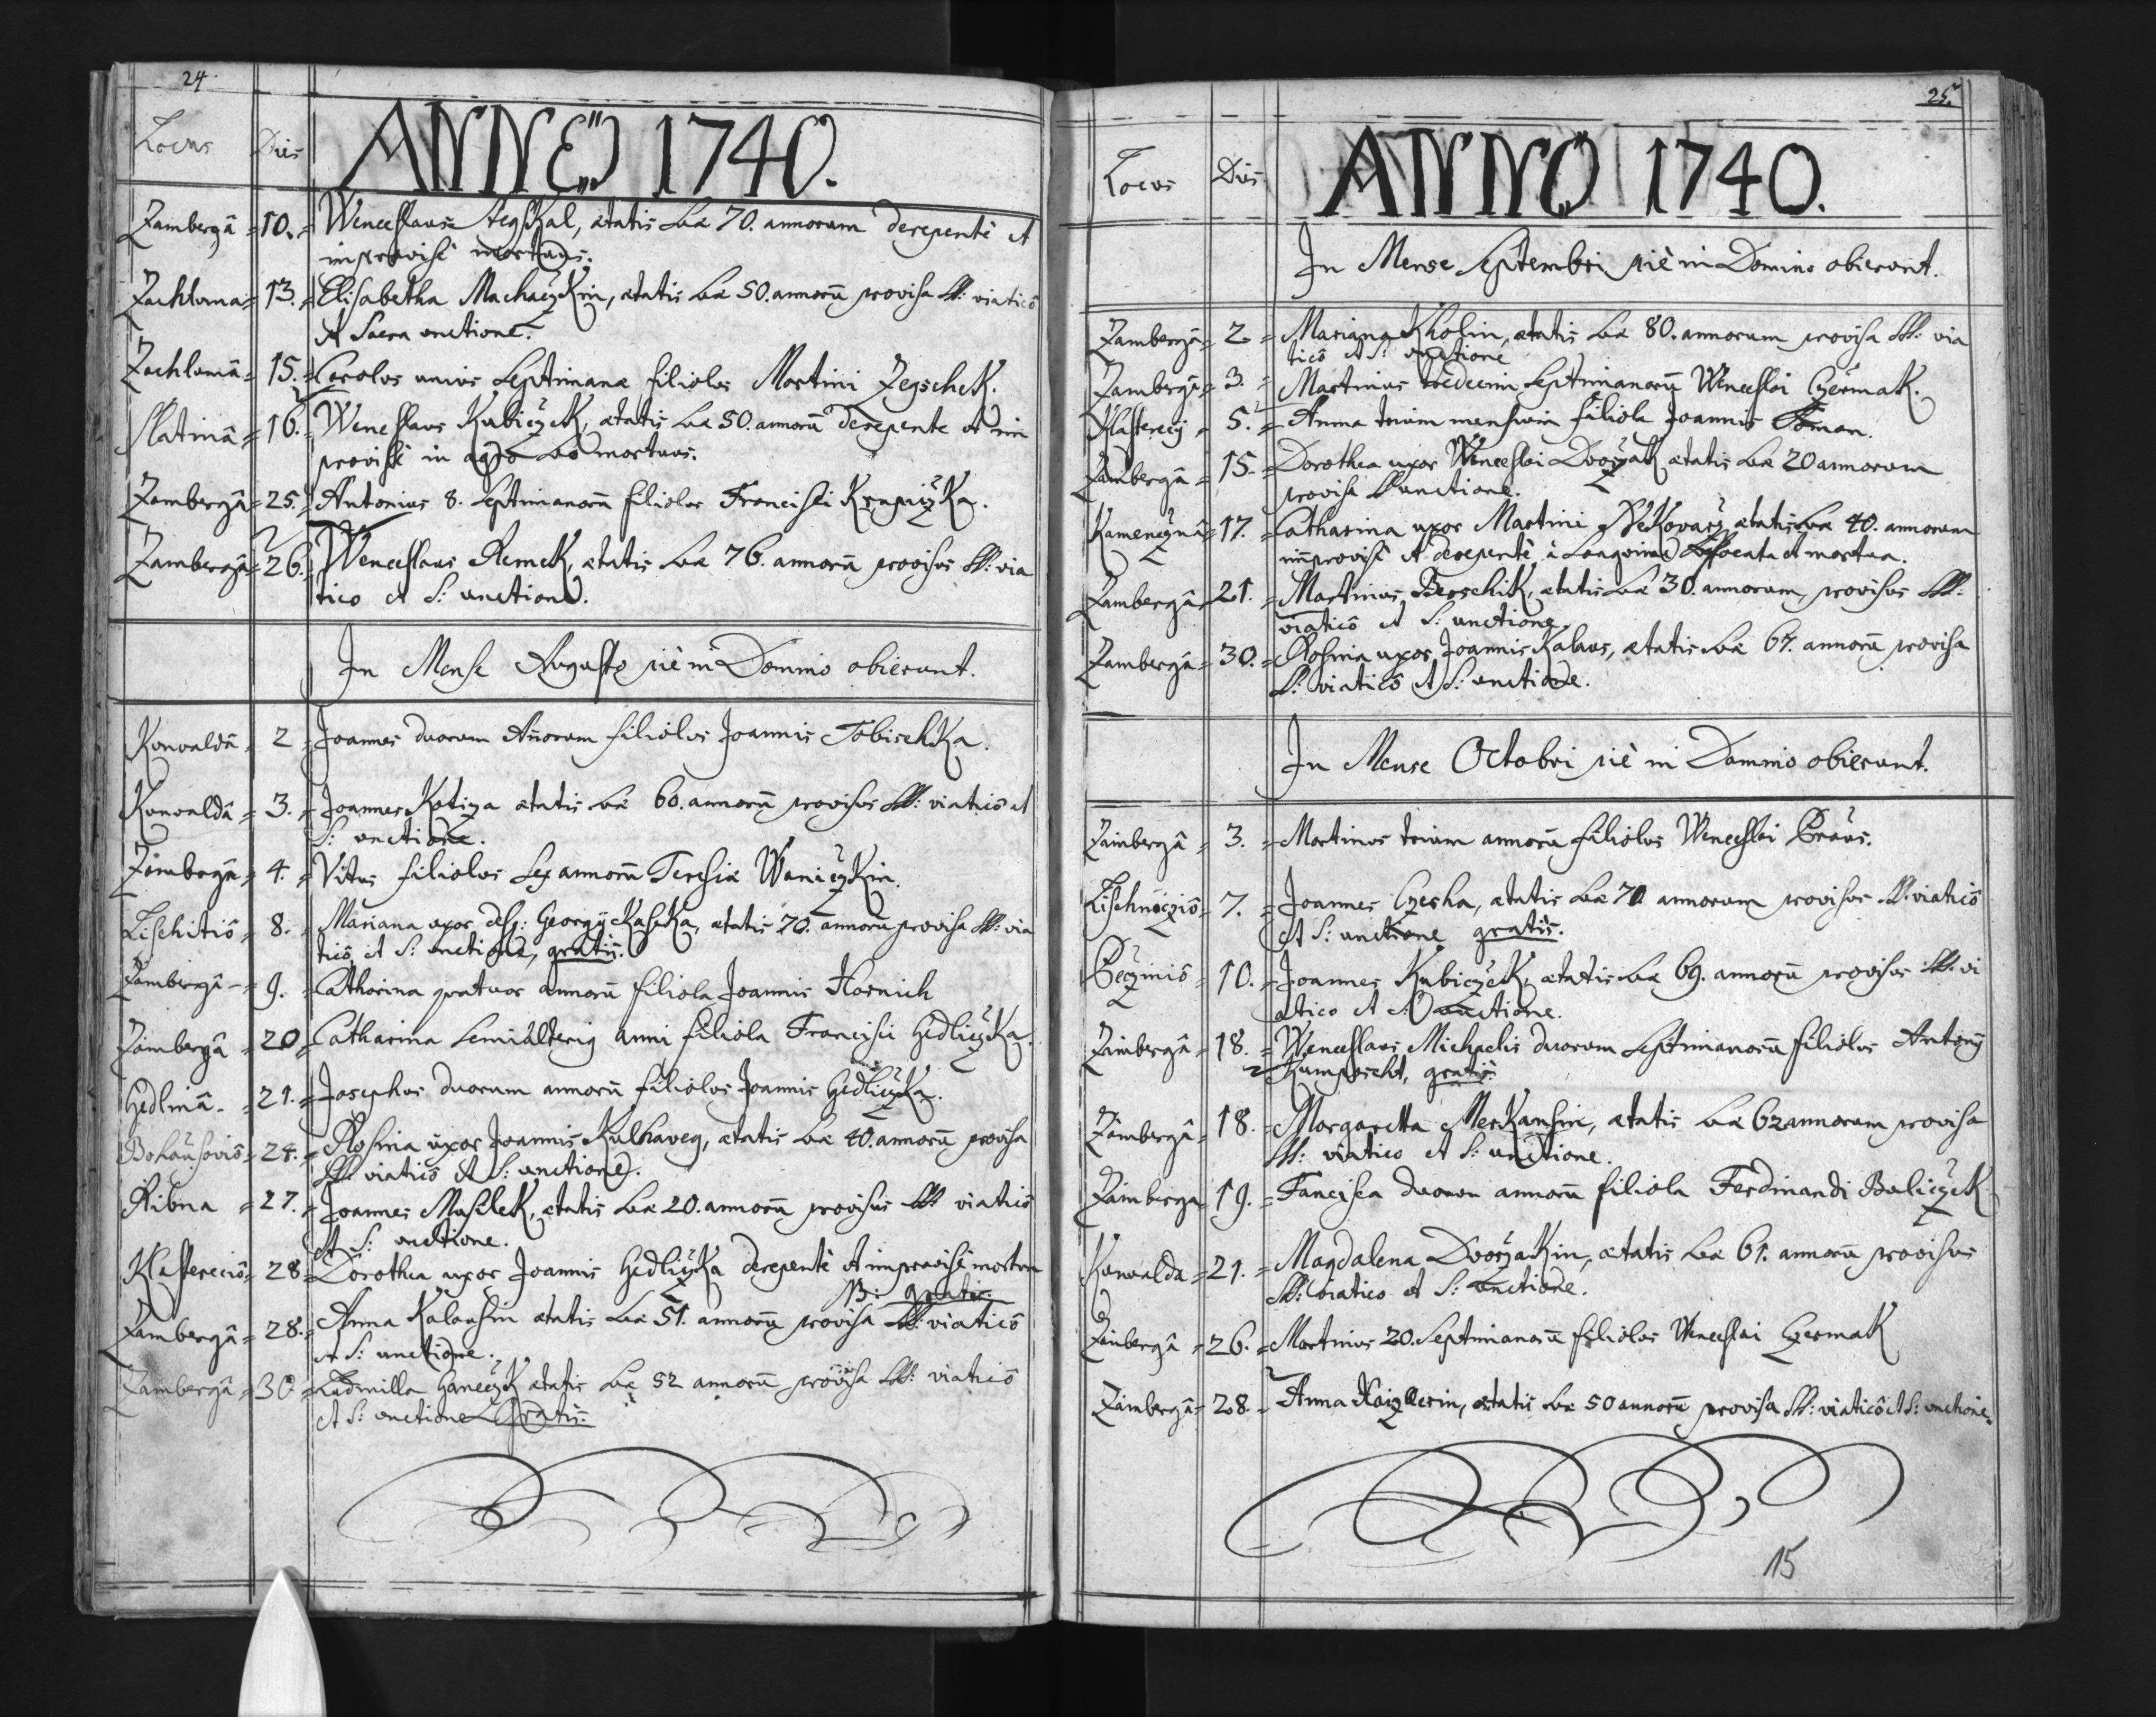 24
Locus Dies ANNO 1740.
Zambergâ = 10. = Wenceslaus ætatis suæ 70. annorum derepentè et
improvisè mortuus.
Zachluma = 13. = Elisabetha Machaczkin, ætatis suæ 50. annorū provisa SS: viaticô
et Sacra unctione.
Zachlumâ = 15. = Carolus unius Septimanæ filiolus Martini Zegschek.
Slatinâ = 16. = Wenceslaus Kubiczek, ætatis suæ 50. annorū derepente et im
provisè in agro suo mortuus.
Zambergâ = 25. = Antonius 8. Septimanarū filiolus Francisci Krupiczka.
Zambergâ = 26. = Wenceslaus Remek, ætatis suæ 76. annorū provisus SS: via
tico et S: unctione.
In Mense Augusto piè in Domino obierunt.
Kunvaldâ = 2 = Joannes duorum Añorum filiolus Joannis Tobischka.
Kunvaldâ = 3. = Joannes Kotiza ætatis suæ 60. annorū provisus SS: viaticô et
S: unctione.
Zambergâ = 4. = Vitus filiolus Sex annorū Teresiæ Waniczkin.
Lischitiô = 8. = Mariana uxor Georgÿ Kaska, ætatis 70. annorū provisa SS: via
ticô et S: unctione, gratis.
Zambergâ = 9. = Catharina quatuor annorū filiola Joannis Hornich
Zambergâ = 20 = Catharina Semialterig anni filiola Francisci Hedliczka.
Hedlinâ = 21. = Josephus duorum annorū filiolus Joannis Hedliczka.
Bohausoviô = 24. = Rosina uxor Joannis Kulhaveg, ætatis suæ 40. annorū provisa
SS: viaticô et S: unctione.
Ribna = 27. = Joannes Masilek, ætatis suæ 20. annorū provisus SS: viaticô
et S: unctione.
Klastereciô = 28 = Dorothea uxor Joannis Hedliczka derepentè et improvisè mortua
NB: gratis.
Zambergâ = 28. = Anna Kalausin ætatis suæ 51. annorū provisa SS: viaticô
et S: unctione.
Zambergâ = 30 = Ludmilla Haneczk ætatis suæ 52 annorū provisa SS: viaticô
et S: unctione Gratis.
25.
Locus Dies ANNO 1740.
In Mense Septembri piè in Domino obierunt.
Zambergâ = 2 = Mariana Kholin, ætatis suæ 80. annorum provisa SS: via
ticô et S: unctione
Zambergâ = 3. = Martinus tredecim Septimanarū Wenceslai Czermak.
Klasterecÿ = 5. = Anna trium mensium filiola Joannis Toman.
Zambergâ = 15. = Dorothea uxor Wenceslai Dvorzak ætatis suæ 20 annorum
provisa S unctione.
Kamenicznâ = 17. = Catharina uxor Martini ætatis suæ 40. annorum
improvisè et derepentè, à Sanguine Suffocata et mortua.
Zambergâ = 21. = Martinus Berschik, ætatis suæ 30. annorum, provisus SS:
viaticô et S: unctione.
Zambergâ = 30. = Rosina uxor Joannis Kalaus, ætatis suæ 67. annorū provisa
S: viaticô et S: unctione.
In Mense Octobri piè in Domino obierunt.
Zambergâ = 3. = Martinus trium annorū filiolus Wenceslai Praus.
Lischnicziô = 7. = Joannes Czerha, ætatis suæ 70 annorum provisus SS: viaticô
et S: unctione gratis.
Pecziniô = 10. = Joannes Kubiczek, ætatis suæ 69. annorū provisus SS: vi
atico et S: unctione.
Zambergâ = 18. = Wenceslaus Michaelis duorum Septimanarū filiolus Antonÿ
Kumprecht, gratis.
Zambergâ = 18. = Margaretta Merkansin, ætatis suæ 62 annorum provisa
SS: viatico et S: unctione.
Zamberga 19. = Fancisca duorum annorū filiola Ferdinandi Baliczek
Kunvalda = 21. = Magdalena Dvorzakin, ætatis suæ 61. annorū provisus
SS: viatico et S: unctione.
Zambergâ = 26. = Martinus 20. Septimanarū filiolus Wenceslai Czermak
Zambergâ = 28. = Anna ætatis suæ 50 annorū provisa SS: viaticô et S: unctione.
15